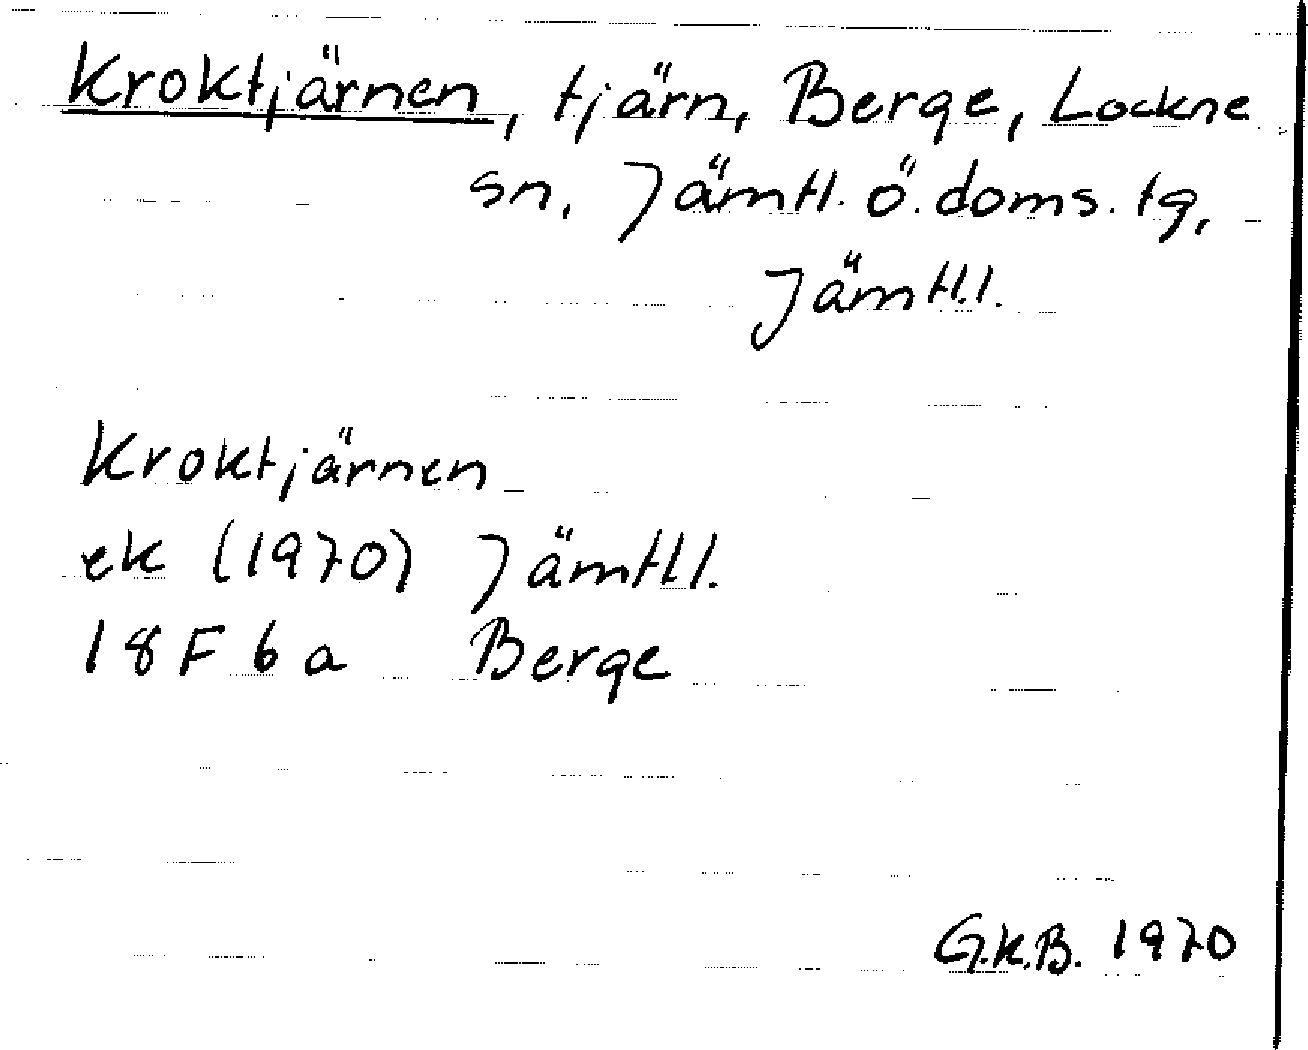 Kroktjärnen, tjärn, Berge, Lockne
sn, Jämtl. ö. doms. tg,
Jämtl.l.
Kroktjärnen
ek (1970) Jämtl l.
18 F 6 a Berge
G.K.B. 1970